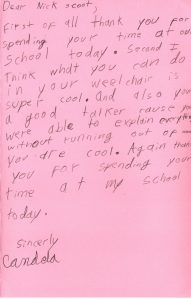 Dear Nick scoot,
First of all thank you for
spending your time at our
School today. Second I
Think what you can do
in your weelchair is
super cool. And also you
a good talker cause you
were able to explain everything
without running out of
you are cool. Again thank
you for spending your
time at my school
today.
Sincerly
Candola